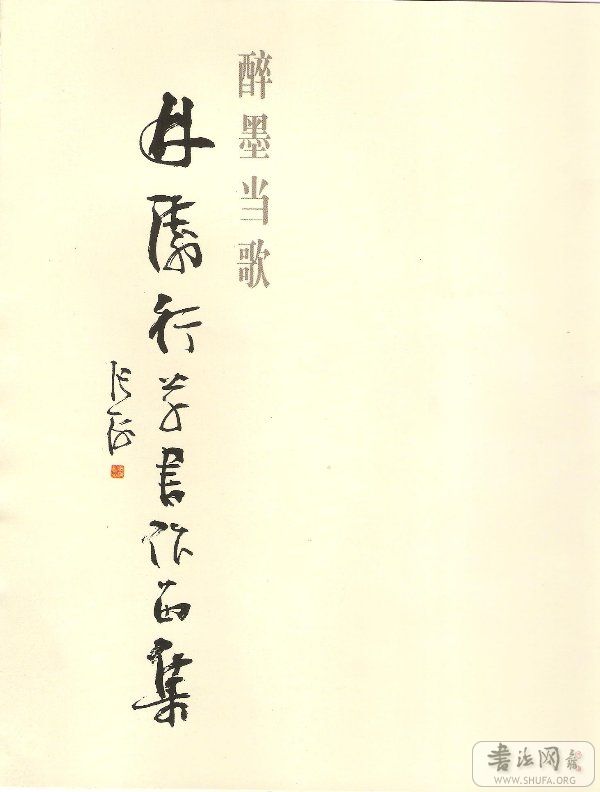 醉墨当歌
行草书作品集
张海
書法网
WWW.SHUFA.ORG